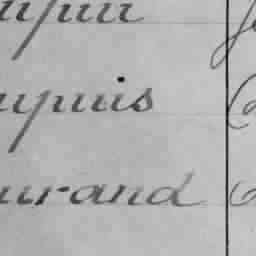 upin
upuis
urand